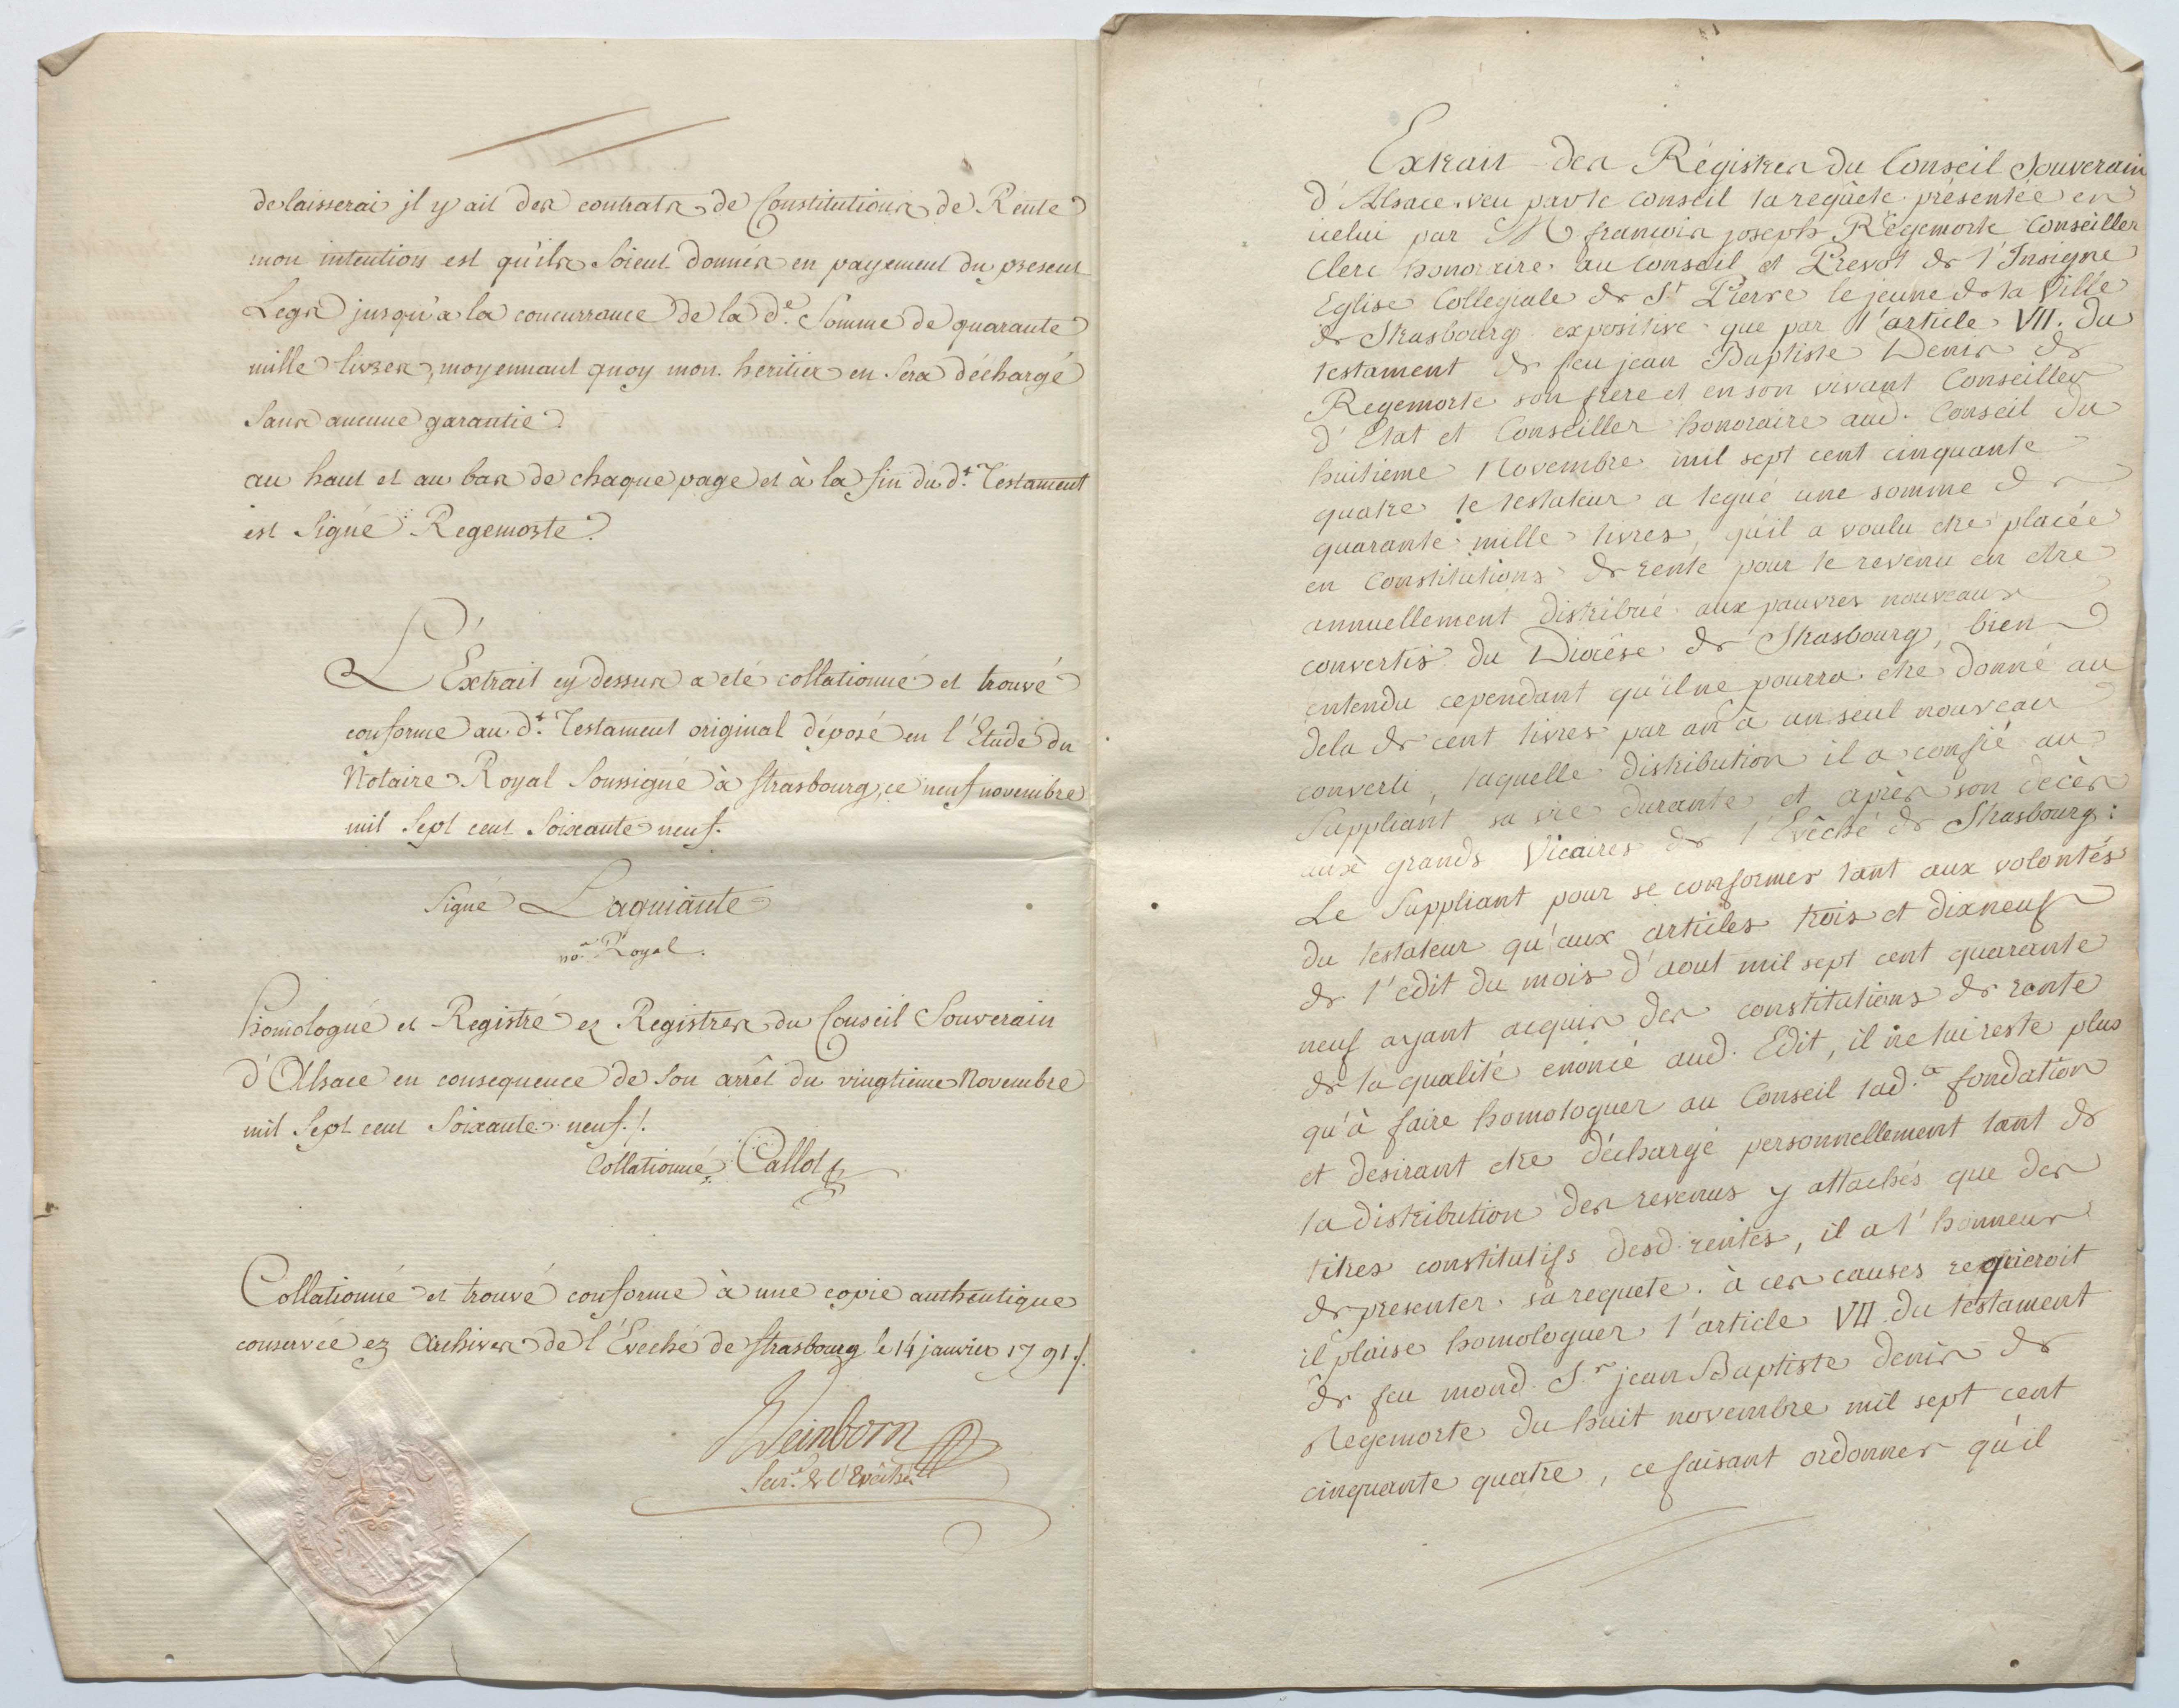 delaisserai jl y ait des contrats de Constitutions de Rente
mon intention est qu'ils soient donnés en payement du present
Legs jusqu'a la concurrance de la de. Somme de quarante
mille livres, moyennant quoy mon heritier en sera déchargé
sans aucune garantie.
au haut et au bas de chaque page et à la fin du dt. Testament
est signé Regemorte.
L'Extrait cy dessus a été collationné et trouvé
conforme au dt. Testament original déposé en l'Etude du
Notaire Royal soussigné à strasbourg, ce neuf novembre
mil sept cent soixante neuf.
signé Laquiante
no.re Royal.
homologué et Registré ez Registres du Conseil Souverain
d'Alsace en consequence de son arrêt du vingtieme Novembre
mil sept cent soixante neuf./.
Collationné Callot
Collationné et trouvé conforme à une copie authentique
conservée ez Archives de l'Evêché de strasbourg le 14 janvier 1791./.
Weinborn
Secr.e de l'Evêché
Extrait des Régistres du Conseil Souverain
d'Alsace. veu par le conseil la reqùete présentée en
icelui par M francois joseph Régemorte Conseiller
Clerc honoraire au conseil et Prevot de l'Insigne
Eglise Collegiale de St Pierre le jeune de la Ville
de Strasbourg expositive que par l'article VII. du
testament de feu jean Baptiste Denis de
Regemorte son frere et en son vivant Conseiller
d'Etat et Conseiller honoraire aud. Conseil du
huitieme Novembre mil sept cent cinquante
quatre le testateur a legué une somme de
quarante mille livres, qu'il a voulu etre placée
en Constitutions de rente pour le revenu en etre
annuellement distribué aux pauvres nouveaux
convertis du Diocèse de Strasbourg, bien
entendu cependant qu'il ne pourra etre donné au
dela de cent livres par an à un seul nouveau
converti, laquelle distribution il a confié au
Suppliant sa vie durante et après son decès
aux grands Vicaires de l'Evêché de Strasbourg:
Le Suppliant pour se conformer tant aux volontés
du testateur qu'aux articles trois et dixneuf
de l'edit du mois d'aout mil sept cent quarante
neuf ayant acquis des constitutions de rente
de la qualité enoncié aud. Edit, il ne lui reste plus
qu'à faire homologuer au Conseil lad.e fondation
et desirant etre déchargé personnellement tant de
la distribution des revenus y attachés que des
titres constitutifs desd. rentes, il a l'honneur
de presenter sa requete. à ces causes requieroit
il plaise homologuer l'article VII du testament
de feu mond. Sr jean Baptiste denis de
Regemorte du huit novembre mil sept cent
cinquante quatre, ce faisant ordonner qu'il